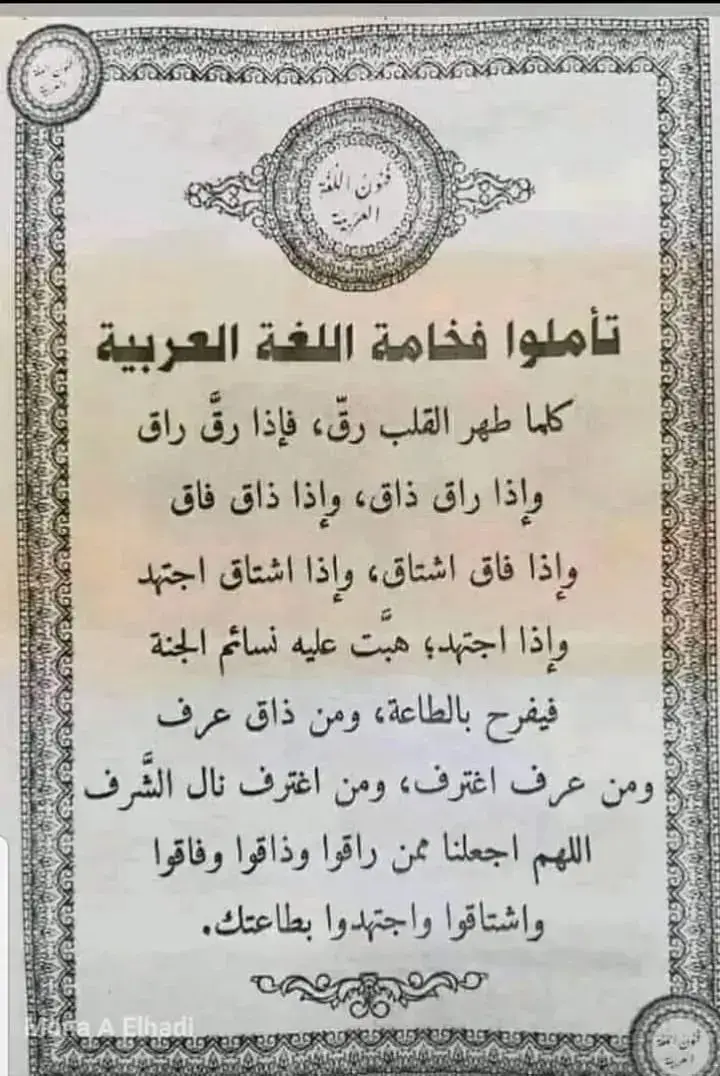 فنون اللغة
العربية
فنون اللغة
العربية
تأملوا فخامة اللغة العربية
كلما طهر القلب رقّ، فإذا رقَّ راق
وإذا راق ذاق، وإذا ذاق فاق
وإذا فاق اشتاق، وإذا اشتاق اجتهد
وإذا اجتهد؛ هبَّت عليه نسائم الجنة
فيفرح بالطاعة، ومن ذاق عرف
ومن عرف اغترف، ومن اغترف نال الشَّرف
اللهم اجعلنا ممن راقوا وذاقوا وفاقوا
واشتاقوا واجتهدوا بطاعتك.
Mona A Elhadi
فنون اللغة
العربية